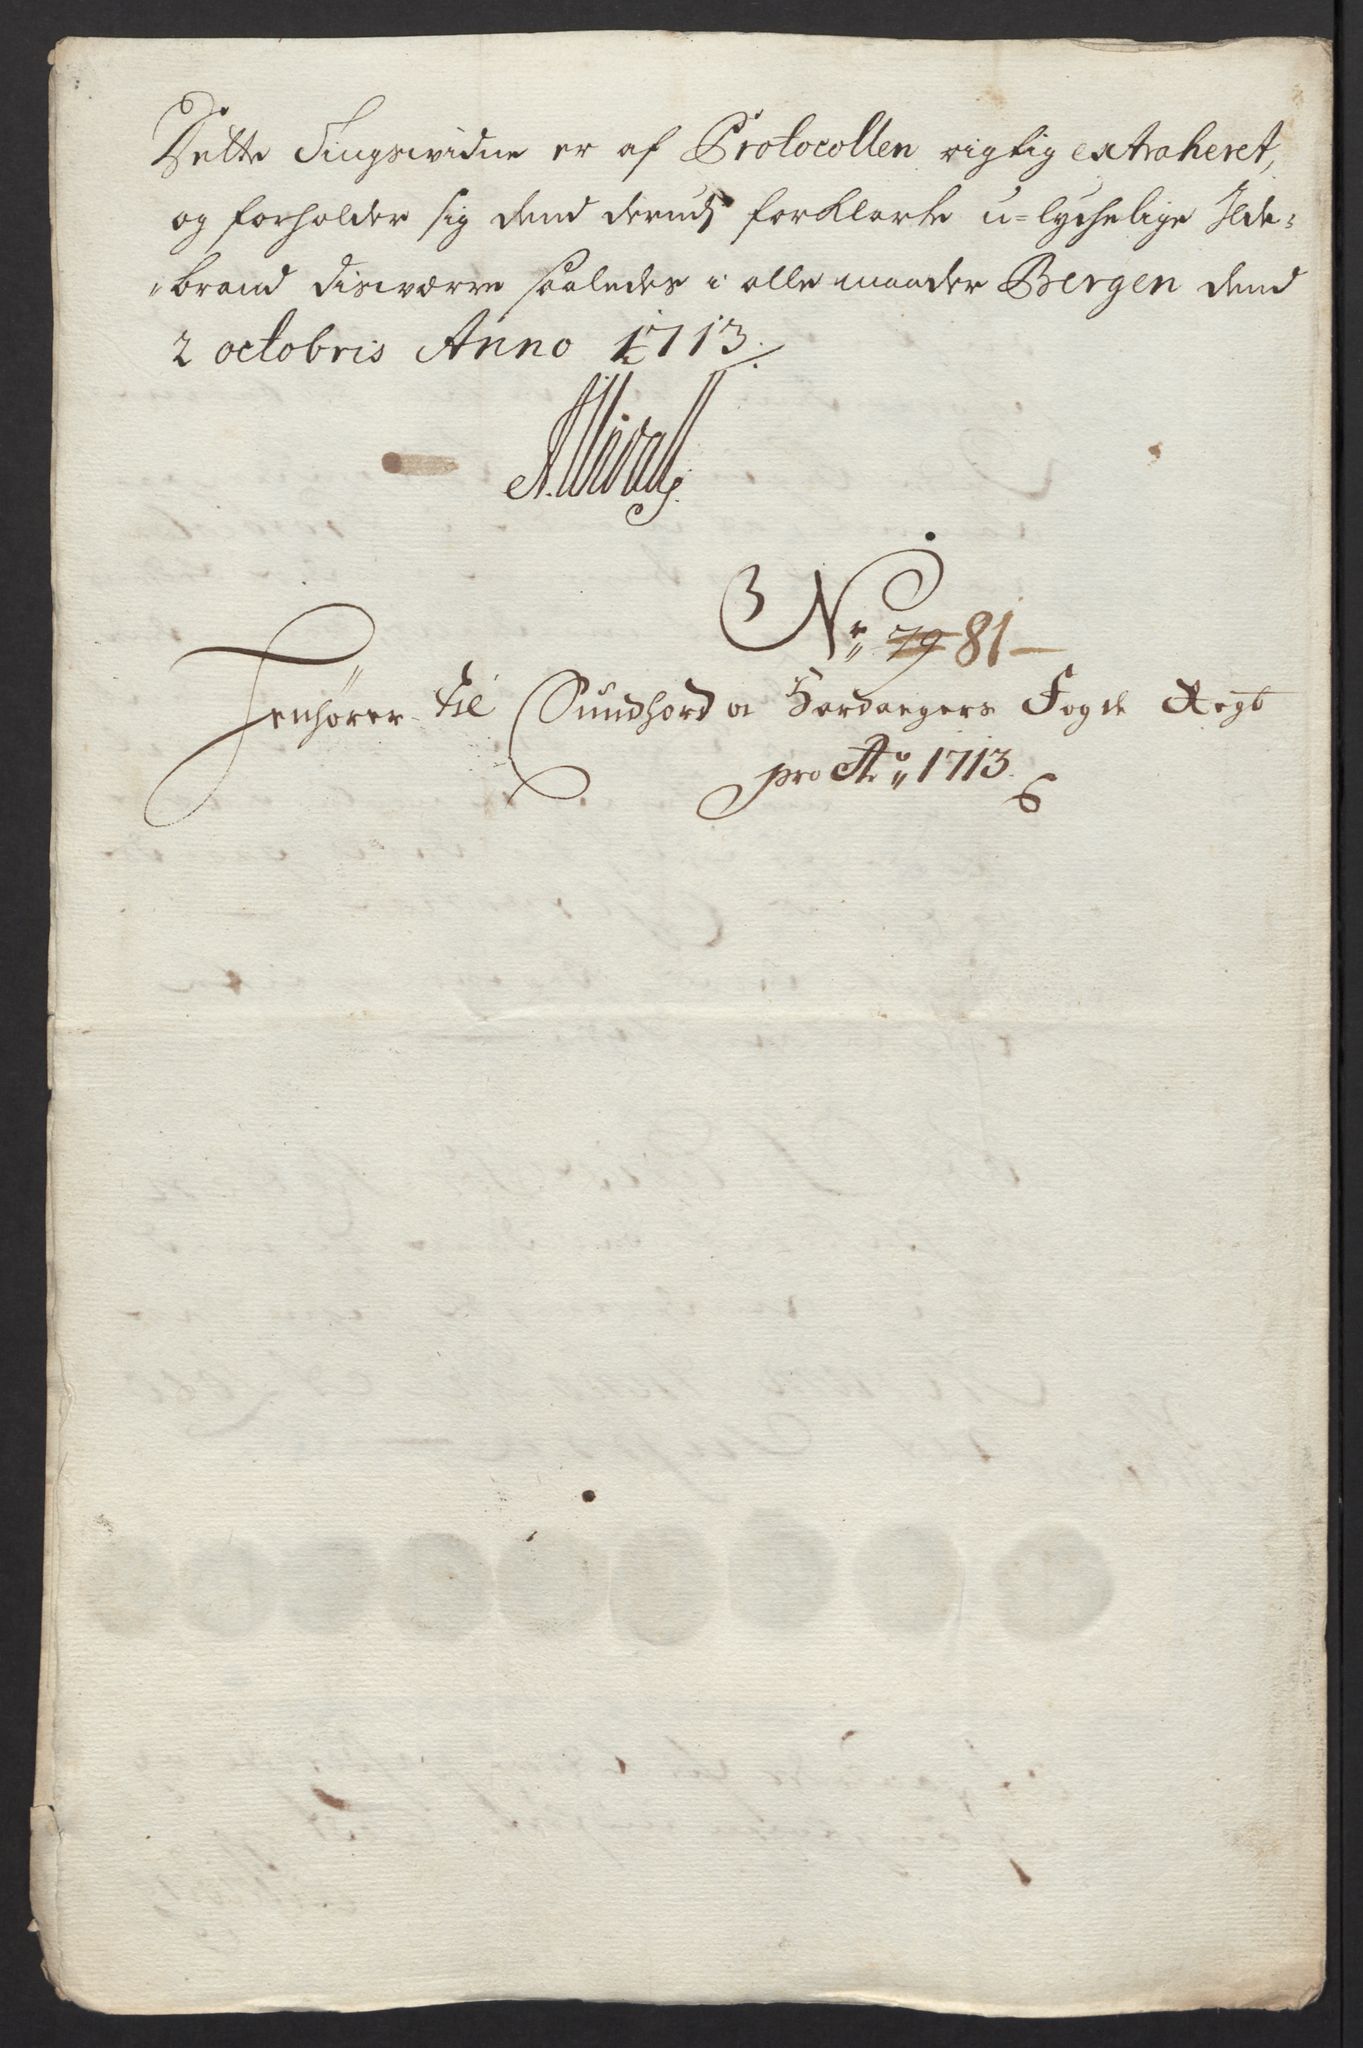 Dette Tingsvidne er af Protocollen rigtig extraheret,
og forholder sig dend derudj forklarte u=lychelige Ilde=
"brand disværre saaledes i alle maader Bergen dend
2 octobris Anno 1713.
No 79 81
Henhører til Sundhord oc Hardangers Fogde Regt
pro Ao 1713.